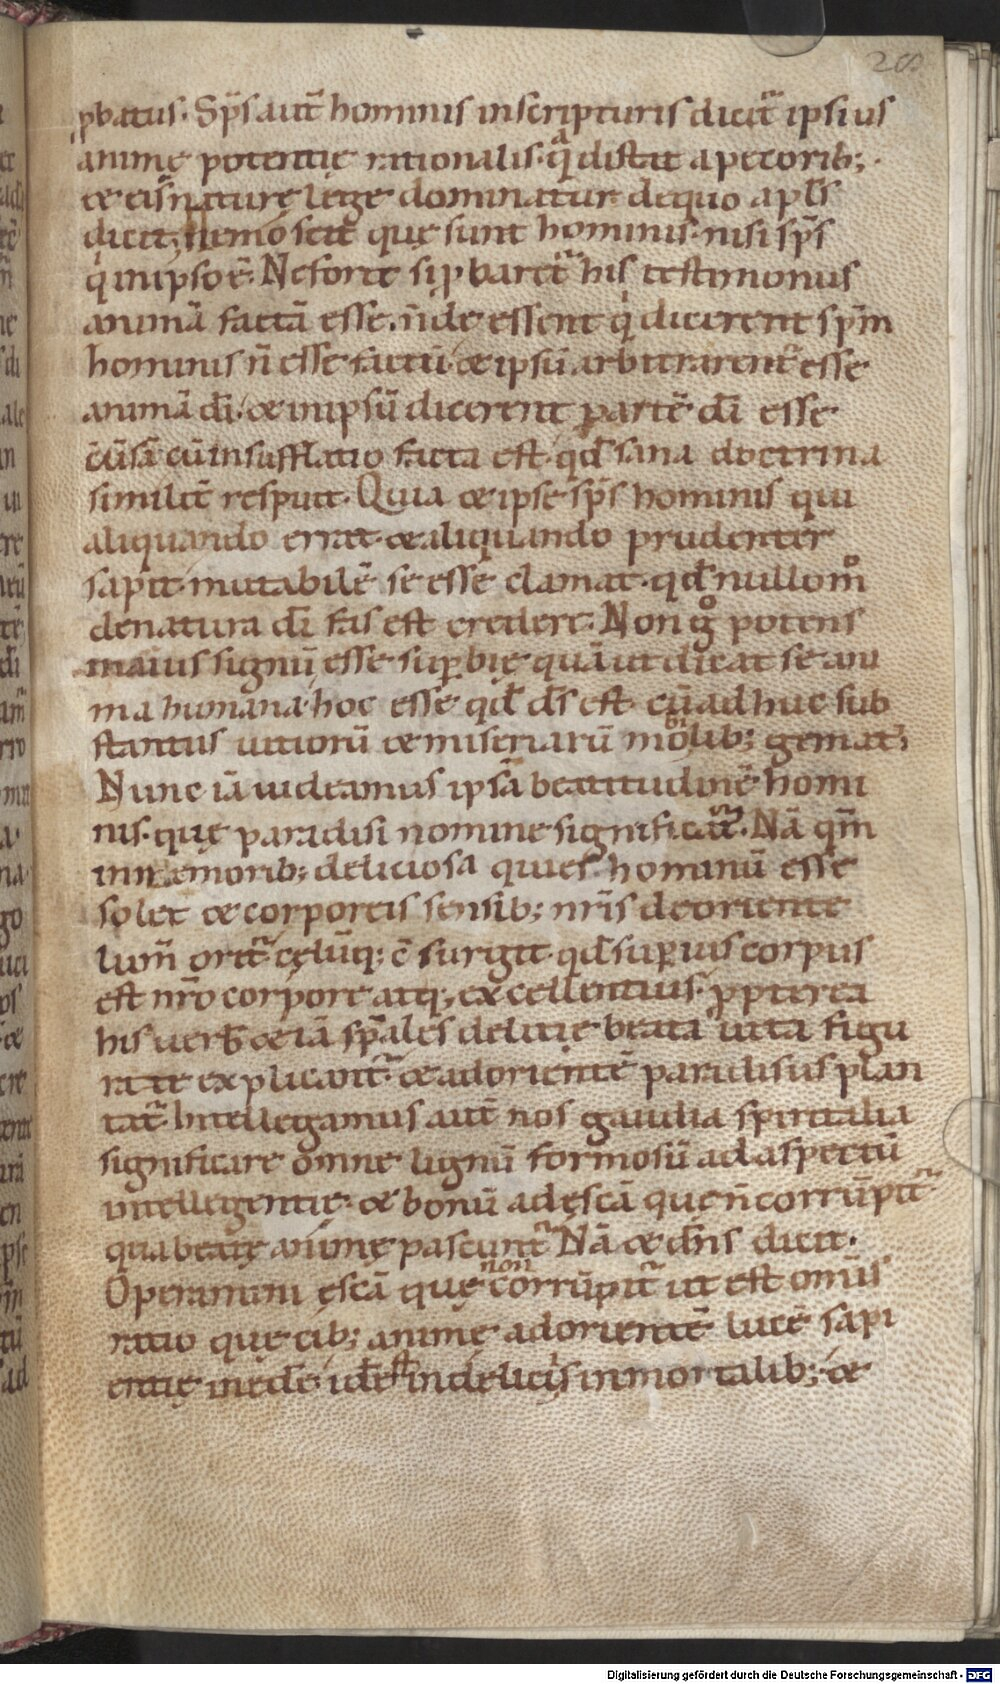 ꝓbatus. Sp̄s aut̄ hominis inscripturis dicit̄ ipsius
animę potentię rationalis. qͣ distat a pecorib;.
& eis naturę lege dominatur. dequo apl̄s
dicit; nemo scit quę sunt hominis. nisi sp̄s
qͥ inipso ē. Ne forte si ꝓbaret̄ his testimoniis
animā factā esse. n̄ deessent qͥ dicerent sp̄m
hominis n̄ esse factū. & ipsū arbitrarent̄ esse
animā dī. & inipsū dicerent partē dī esse
cū insufflatio facta est. qd̄ sana doctrina
similit̄ respuit. Quia & ipse sp̄s hominis qui
aliquando errat. & aliquando prudenter
sapit. mutabilē se esse clamat. qd̄ nullom̊
denatura dī fas est credere. Non gͦ potens
maius signū esse suꝑbię quā ut dicat se ani
ma humana. hoc esse qd̄ ds̄ est. cū adhuc sub
tantus uitiorū & miseriarū molib; gemat;
Nunc iā uideamus ipsā beatitudinē homi
nis. quę paradisi nomine significat̄. Nā qm̄
in nemorib; deliciosa quies hominū esse
solet & corporeis sensib; nr̄is deoriente
lum̄ orit̄ cęlūq; c̄surgit. qd̄ suꝑius corpus
est nr̄o corpore atq; excellentius. ꝓpterea
his uerb̄ & iā sp̄ales delicię beata uita figu
ratę explicant̄. & adorientē paradisus plan
tat̄. Intellegamus aut̄ nos gaudia spiritalia
significare omne lignū formosū ad aspectū
intellegentię. & bonū adęscā quę n̄ corrūpit̄
qua beatę animę pascunt̄. Nā & dn̄s dicit.
Operamini ęscā quę non corrūpit̄ ut est omīs
ratio quę cib; animę adorientē lucē sapi
entię inedē. id est indeliciis inmortalib; &
Digitalisierung gefördert durch die Deutsche Forschungsgemeinschaft - DFG